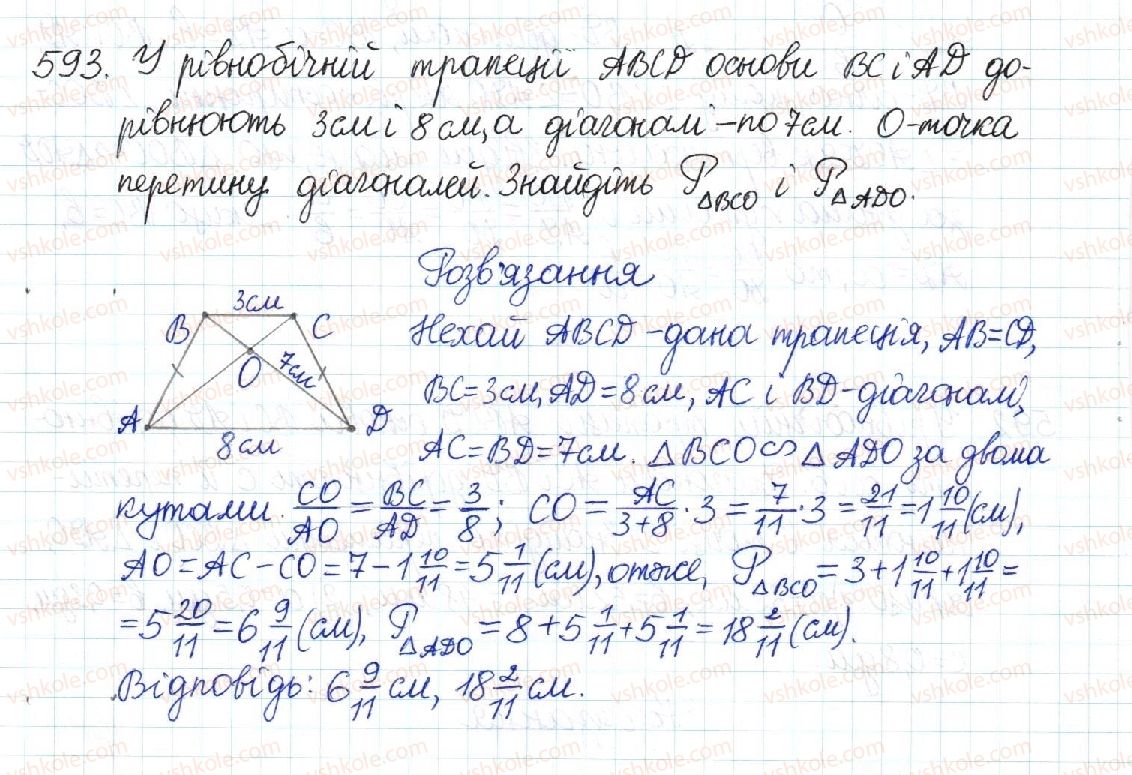 593. У рівнобічній трапеції ABCD основи BC і AD до-
рівнюють 3см і 8см, а діагоналі – по 7см. O-точка
перетину діагоналей. Знайдіть P△BCO і P△ADO.
Розв'язання
3см
B C
O 7см
A D
8см
Нехай ABCD - дана трапеція, AB=CD,
BC=3см, AD=8см, AC і BD-діагоналі,
AC=BD=7см. △BCO∽△ADO за двома
кутами. CO/AO = BC/AD = 3/8; CO = AC/(3+8) · 3 = 7/11 · 3 = 21/11 = 1 10/11 (см),
AO = AC – CO = 7 – 1 10/11 = 5 1/11 (см), отже, P△BCO = 3 + 1 10/11 + 1 10/11 =
= 5 20/11 = 6 9/11 (см), P△ADO = 8 + 5 1/11 + 5 1/11 = 18 2/11 (см).
Відповідь: 6 9/11 см, 18 2/11 см.
vshkole.com